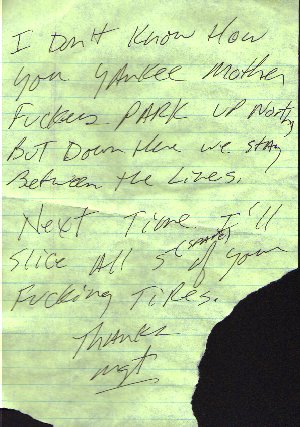 I Don't Know How
You YANkee Mother
Fuckers PARK UP North,
BuT Down Here we STAy
Between the Lines.
Next Time I'll
Slice All 5 (spare) of your
Fucking Tires.
Thanks
mgt